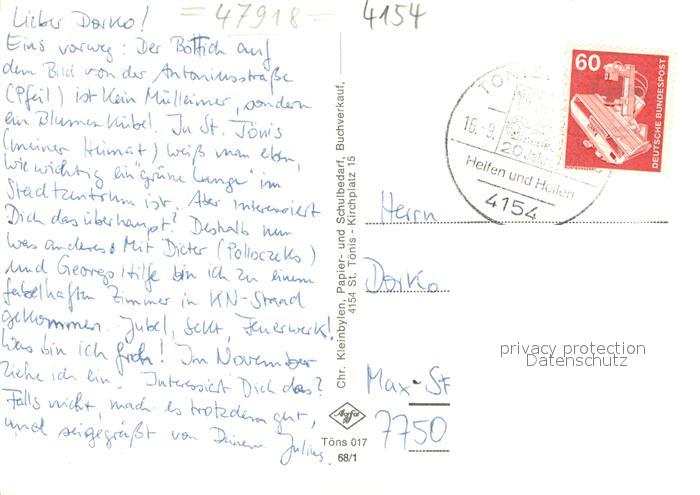 = 47918 =
4154
Lieber Darko!
Eins vorweg: Der Bottich auf
dem Bild von der Antoniusstraße
(Pfeil) ist kein Mülleimer, sondern
ein Blumenkübel. In St. Tönis
(meiner Heimat) weiß man eben,
wie wichtig ein "grüne Lunge" im
Stadtzentrum ist. Aber interessiert
Dich das überhaupt? Deshalb nun
was anderes: Mit Dieter (Polloczeks)
und Georgs Hilfe bin ich zu einem
fabelhaften Zimmer in KN-Staad
gekommen. Jubel, Sekt, Feuerwerk!
Was bin ich froh! Im November
ziehe ich ein. Interessiert Dich das?
Falls nicht, mach es trotzdem gut,
und sei gegrüßt von Deinem Julius.
Chr. Kleinbylen, Papier- und Schulbedarf, Buchverkauf,
4154 St. Tönis - Kirchplatz 15
Agfa
Töns 017
68/1
TÖNIS
16.-9.
20 Jahre
Helfen und Heilen
4154
60
DEUTSCHE BUNDESPOST
Herrn
Darko
Max-St
7750
privacy protection
Datenschutz